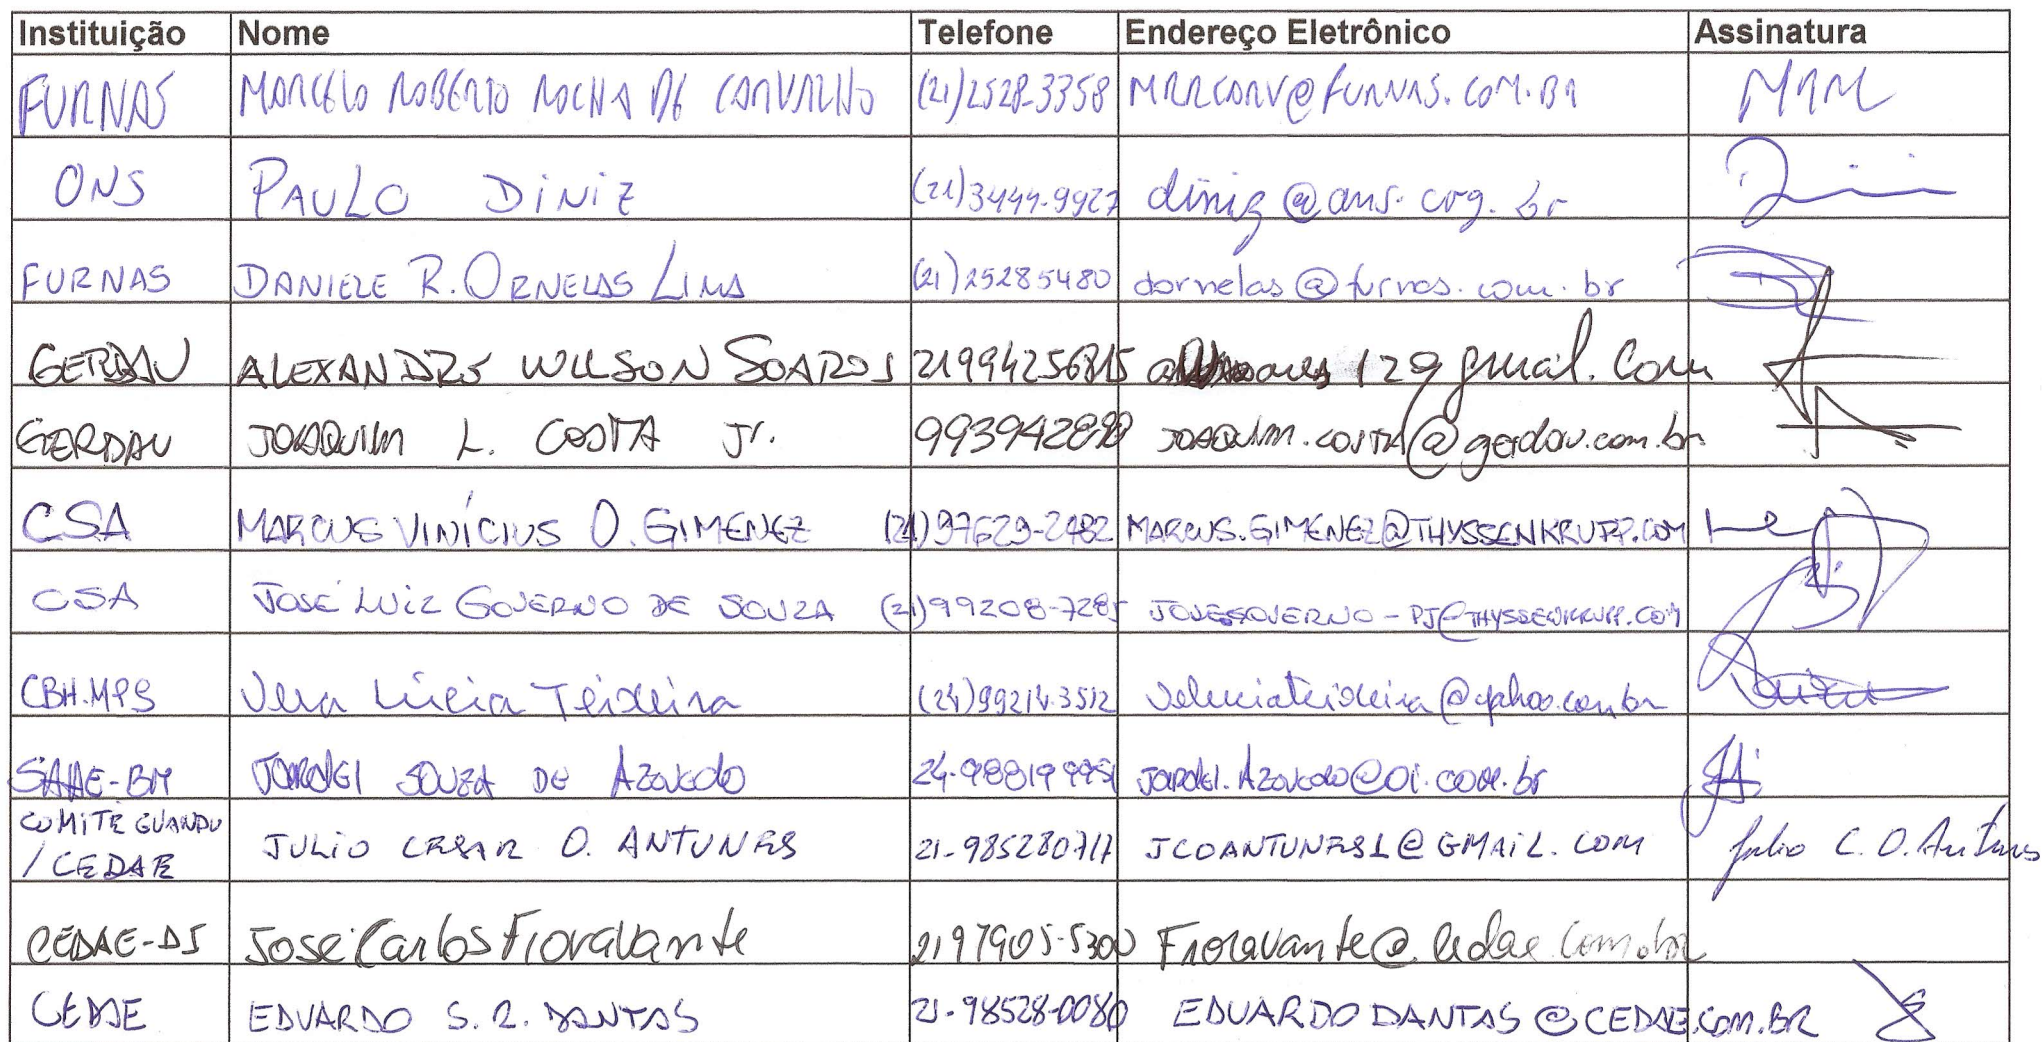 Instituição Nome Telefone Endereço Eletrônico Assinatura
FURNAS MARCELO ROBERTO ROCHA DE CARVALHO (21)2528-3358 MRRCARV@FURNAS.COM.BR MRM
ONS PAULO DINIZ (21)3444-9927 diniz@ons.org.br
FURNAS DANIELE R. ORNELAS LIMA (21)25285480 dornelas@furnas.com.br
GERDAU ALEXANDRE WILSON SOARES 21994256815 gmail.com
GERDAU JOAQUIM L. COSTA Jr. JOAQUIM.COSTA@gerdau.com.br
CSA MARCUS VINÍCIUS O. GIMENEZ (21)97629-2482 MARCUS.GIMENEZ@THYSSENKRUPP.COM
CSA JOSÉ LUIZ GOVERNO DE SOUZA (21)99208-7285 JOSEGOVERNO-PJ@THYSSENKRUPP.COM
CBH.MPS Vera Lúcia Teixeira (24)99214.3512 veluciateixeira@yahoo.com.br
SAAE-BM JARDEI SOUZA DE AZEVEDO JARDEI.AZEVEDO@OI.COM.br
COMITÊ GUANDU
/ CEDAE JULIO CESAR O. ANTUNES 21-985280717 JCOANTUNES1@GMAIL.COM Julio C. O. Antunes
CEDAE-DJ José Carlos Fioravante 2197905-5300 Fioravante@cedae.com.br
CEDAE EDUARDO S. R. DANTAS 21-98528-0080 EDUARDODANTAS@CEDAE.COM.BR